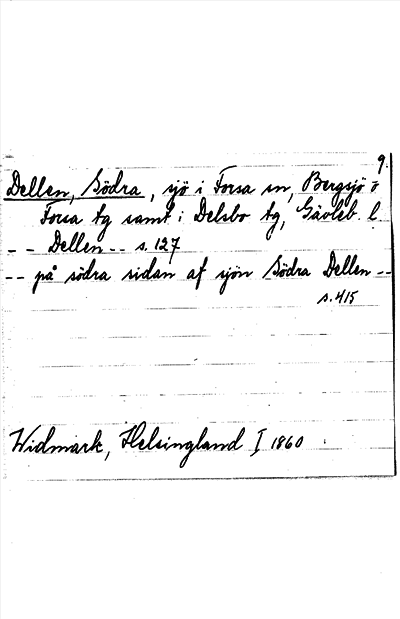 9.
Dellen, Södra, sjö i Forsa sn, Bergsjö o
Forsa tg samt i Delsbo tg, Gävleb. l.
- - Dellen - - s. 127
- - på södra sidan af sjön Södra Dellen - -
s. 415
Widmark, Helsingland I 1860